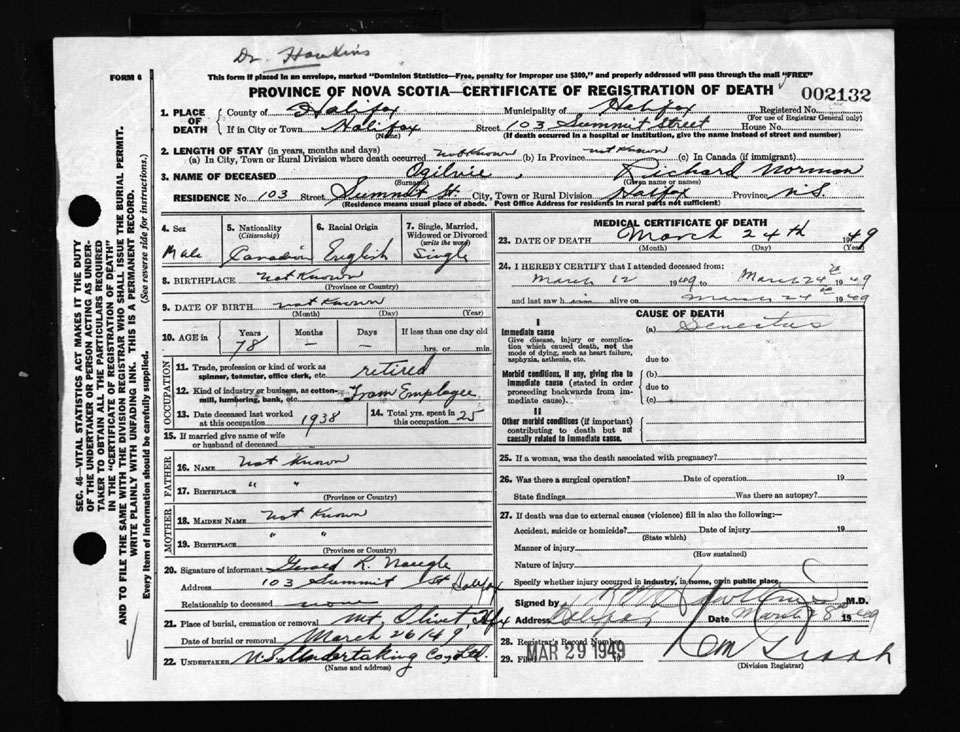 Dr. Hawkins
FORM 6
This form if placed in an envelope, marked "Dominion Statistics—Free, penalty for improper use $300," and properly addressed will pass through the mail "FREE"
PROVINCE OF NOVA SCOTIA—CERTIFICATE OF REGISTRATION OF DEATH
002132
1. PLACE OF DEATH
County of Halifax Municipality of Halifax Registered No.
(For use of Registrar General only)
If in City or Town Halifax Street 103 Summit Street House No.
(Name) (If death occurred in a hospital or institution, give the name instead of street and number)
2. LENGTH OF STAY (in years, months and days)
(a) In City, Town or Rural Division where death occurred not Known (b) In Province not Known (c) In Canada (if immigrant)
3. NAME OF DECEASED Ogilvie, Richard Norman
(Surname) (Given name or names)
RESIDENCE No. 103 Street Summit St. City, Town or Rural Division Halifax Province N.S.
(Residence means usual place of abode. Post Office Address for residents in rural parts not sufficient)
4. Sex
Male
5. Nationality
(Citizenship)
Canadian
6. Racial Origin
English
7. Single, Married, Widowed or Divorced
(write the word)
Single
8. BIRTHPLACE not Known
(Province or Country)
9. DATE OF BIRTH not Known
(Month) (Day) (Year)
10. AGE in
Years Months Days If less than one day old
78 — — hrs. or min.
OCCUPATION
11. Trade, profession or kind of work as spinner, teamster, office clerk, etc. retired
12. Kind of industry or business, as cotton-mill, lumbering, bank, etc. Tram Employee
13. Date deceased last worked at this occupation 1938
14. Total yrs. spent in this occupation 25
15. If married give name of wife or husband of deceased
FATHER
16. NAME not Known
17. BIRTHPLACE " "
(Province or Country)
MOTHER
18. MAIDEN NAME not Known
19. BIRTHPLACE " "
(Province or Country)
20. Signature of informant Gerald R. Naugle
Address 103 Summit St Halifax
Relationship to deceased none
21. Place of burial, cremation or removal Mt. Olivet Hfx
Date of burial or removal March 26/49
22. UNDERTAKER N.S. Undertaking Co. Ltd
(Name and address)
MEDICAL CERTIFICATE OF DEATH
23. DATE OF DEATH March 24th 1949
(Month) (Day) (Year)
24. I HEREBY CERTIFY that I attended deceased from:
March 12 1949 to March 24th 1949
and last saw him alive on March 24th 1949
CAUSE OF DEATH
I
Immediate cause
Give disease, injury or complication which caused death, not the mode of dying, such as heart failure, asphyxia, asthenia, etc.
(a) Senectus
due to
Morbid conditions, if any, giving rise to immediate cause (stated in order proceeding backwards from immediate cause).
(b)
due to
(c)
II
Other morbid conditions (if important) contributing to death but not causally related to immediate cause.
25. If a woman, was the death associated with pregnancy?
26. Was there a surgical operation? Date of operation 19
State findings Was there an autopsy?
27. If death was due to external causes (violence) fill in also the following:—
Accident, suicide or homicide? Date of injury 19
(State which)
Manner of injury
(How sustained)
Nature of injury
Specify whether injury occurred in industry, in home, or in public place.
Signed by M.D.
Address Halifax Date 1949
28. Registrar's Record Number
29. Filed MAR 29 1949
(Division Registrar)
SEC. 46—VITAL STATISTICS ACT MAKES IT THE DUTY
OF THE UNDERTAKER OR PERSON ACTING AS UNDER-
TAKER TO OBTAIN ALL THE PARTICULARS REQUIRED
IN THE "CERTIFICATE OF REGISTRATION OF DEATH"
AND TO FILE THE SAME WITH THE DIVISION REGISTRAR WHO SHALL ISSUE THE BURIAL PERMIT.
WRITE PLAINLY WITH UNFADING INK. THIS IS A PERMANENT RECORD.
Every item of information should be carefully supplied. (See reverse side for instructions.)